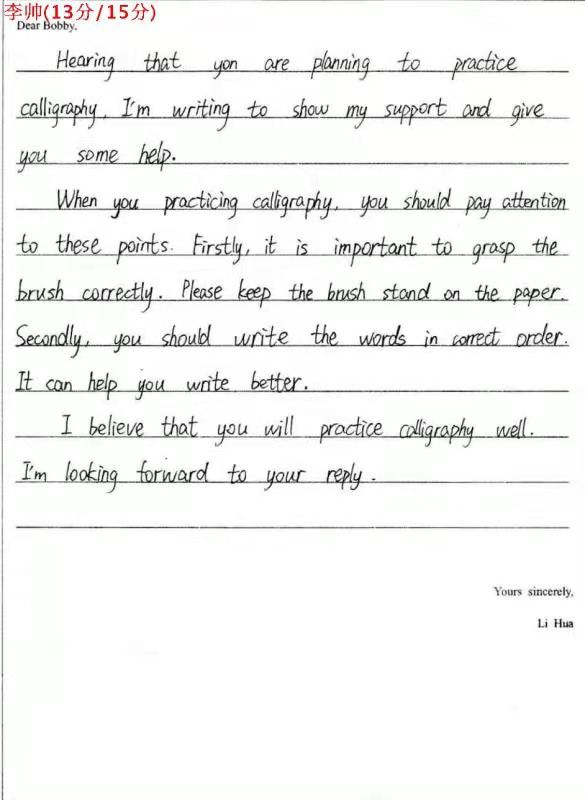 李帅(13分/15分)
Dear Bobby,
Hearing that you are planning to practice
calligraphy, I'm writing to show my support and give
you some help.
When you practicing calligraphy, you should pay attention
to these points. Firstly, it is important to grasp the
brush correctly. Please keep the brush stand on the paper.
Secondly, you should write the words in correct order.
It can help you write better.
I believe that you will practice calligraphy well.
I'm looking forward to your reply.
Yours sincerely,
Li Hua